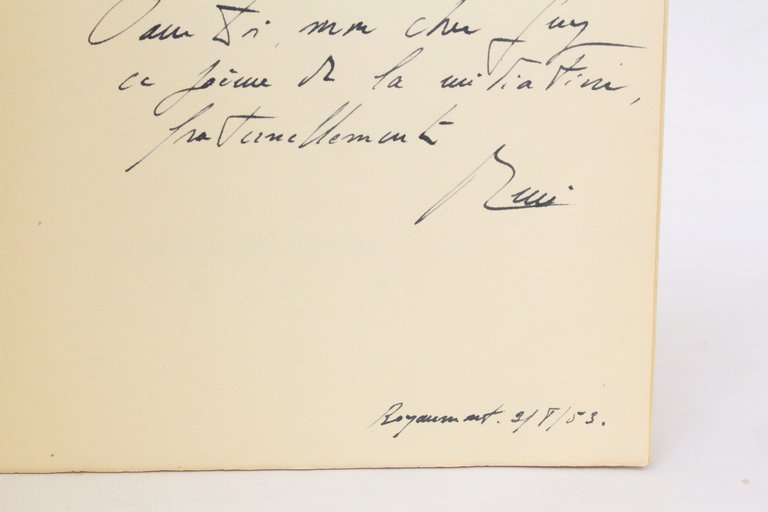 Pour toi, mon cher Guy
ce poème de la méditation,
fraternellement
Rémi
Royaumont. 3/8/53.